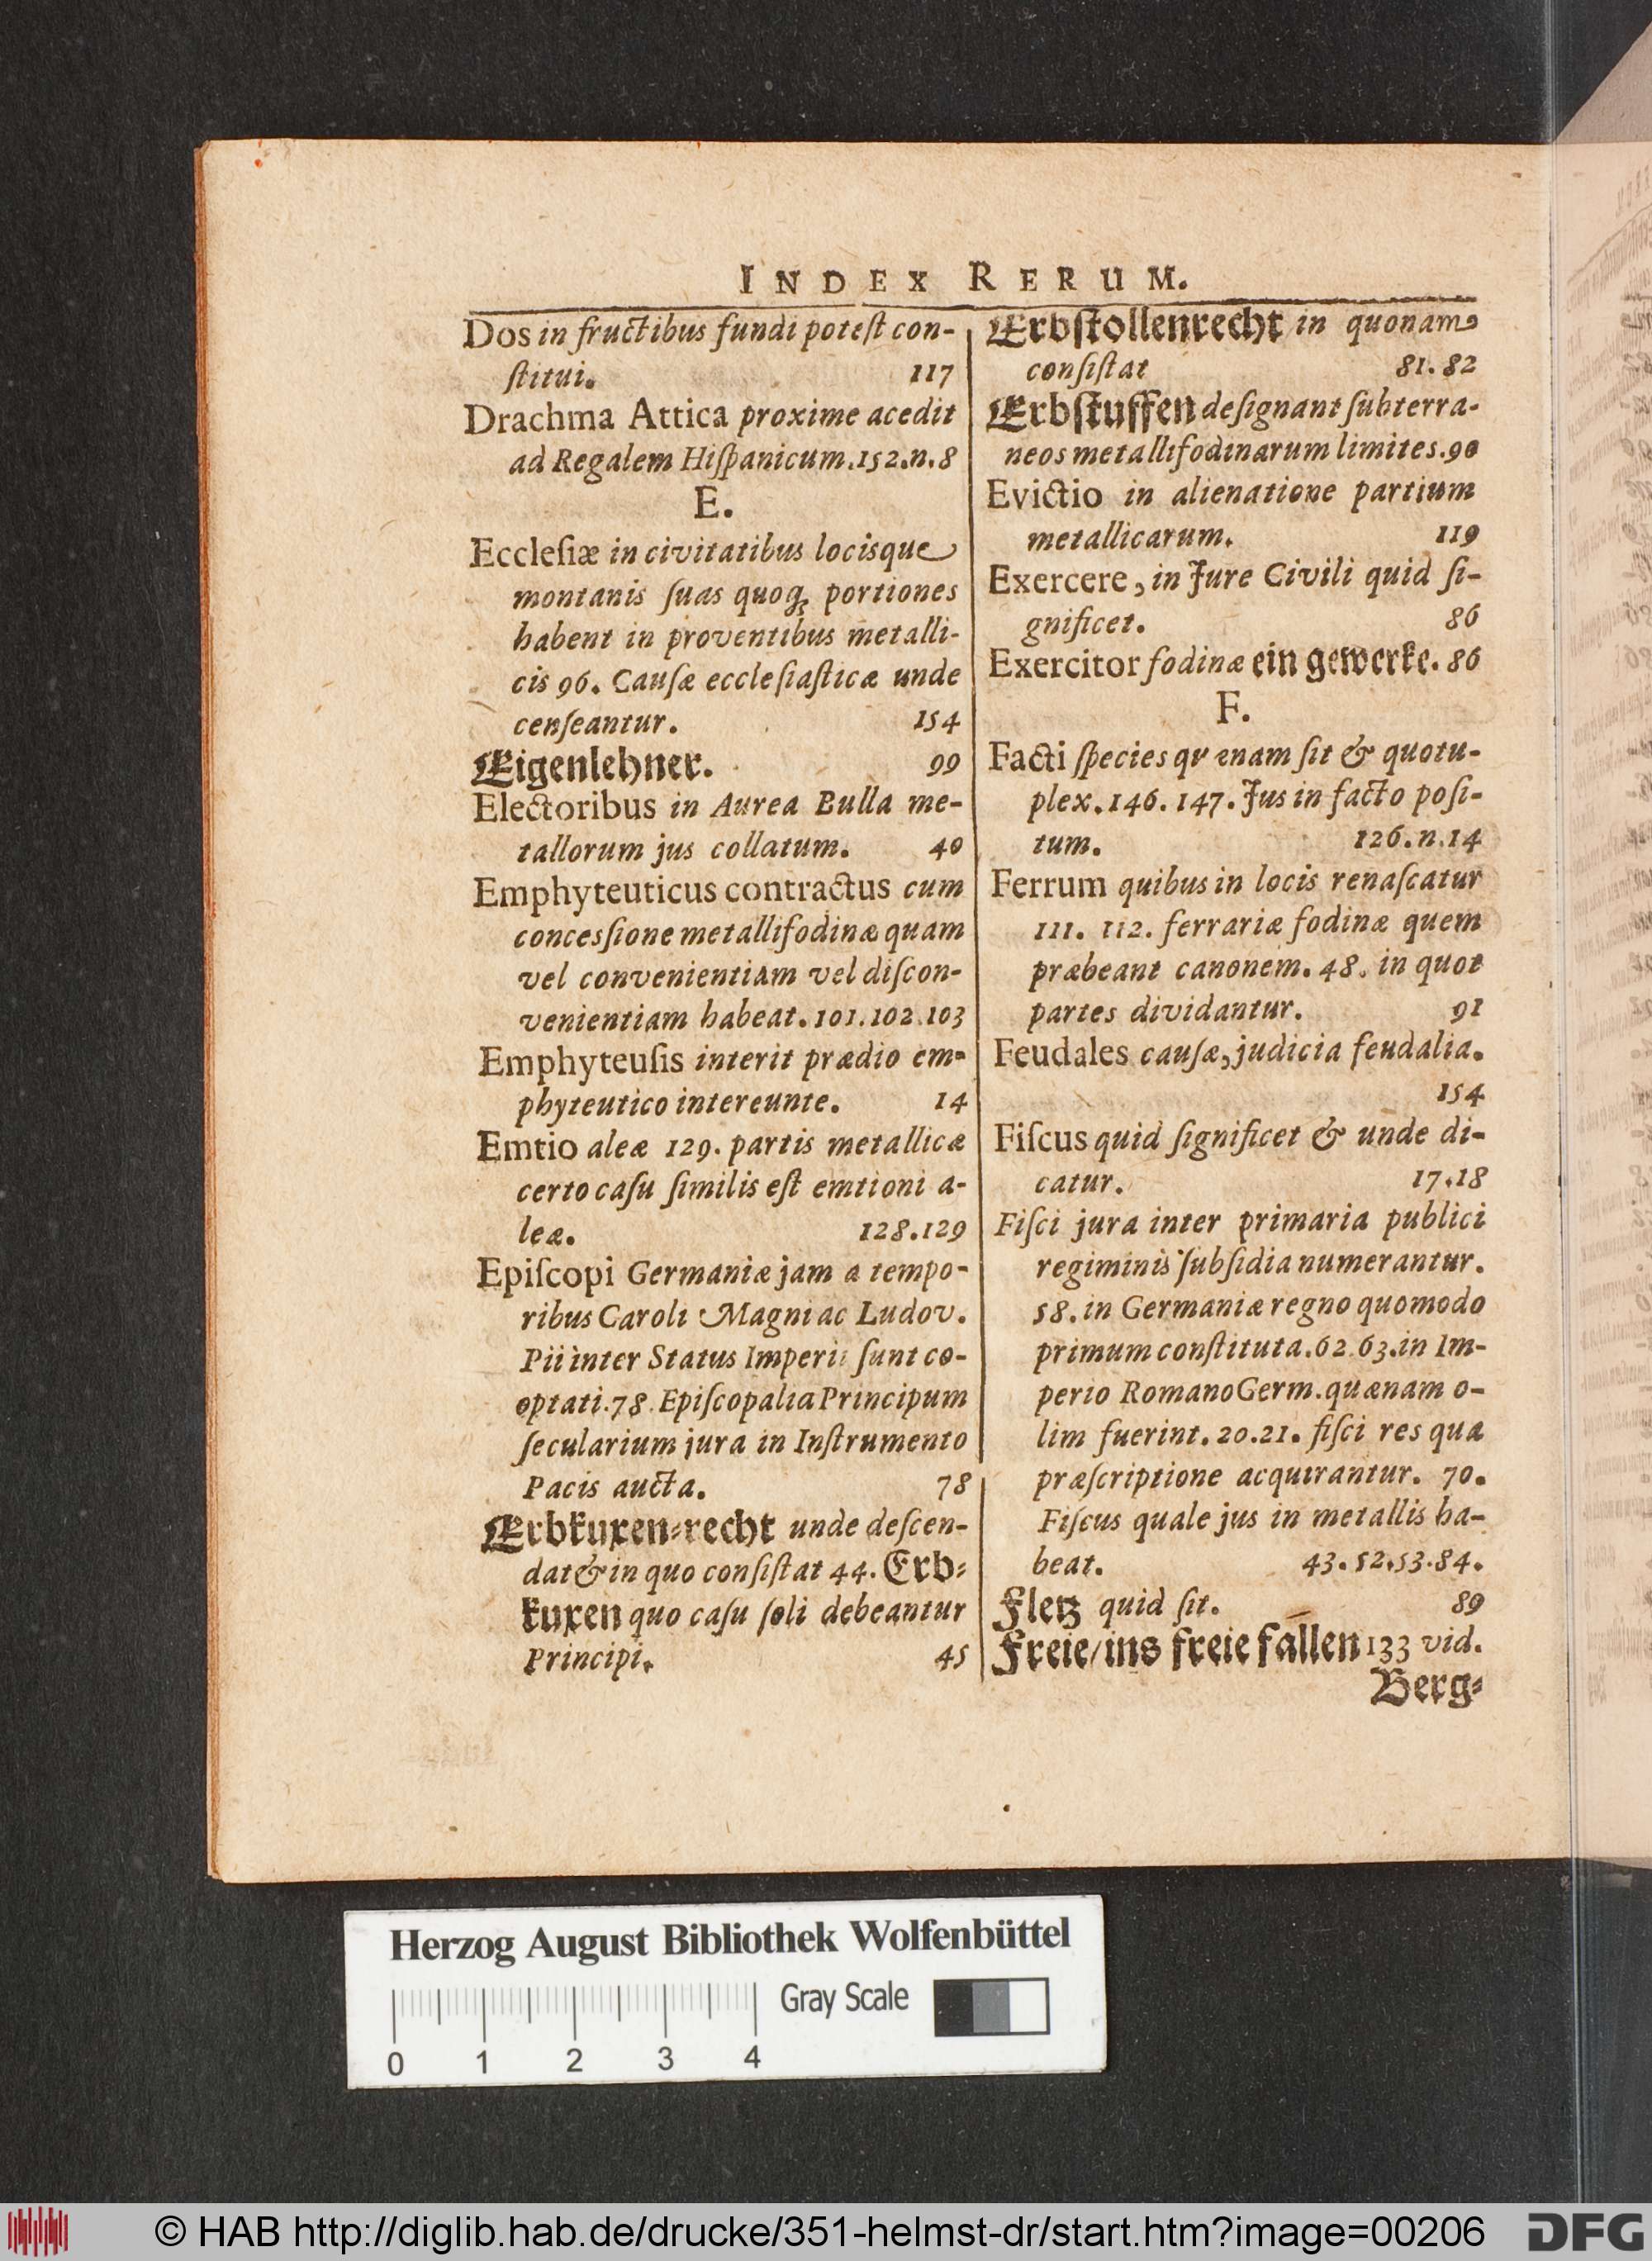 INDEX RERUM.
Dos in fructibus fundi poteſt con-
ſtitui. 117
Drachma Attica proxime acedit
ad Regalem Hiſpanicum. 152. n. 8
E.
Eccleſiæ in civitatibus locisque
montanis ſuas quoq; portiones
habent in proventibus metalli-
cis 96. Cauſæ eccleſiaſticæ unde
cenſeantur. 154
Eigenlehner. 99
Electoribus in Aurea Bulla me-
tallorum jus collatum. 40
Emphyteuticus contractus cum
concesſione metallifodinæ quam
vel convenientiam vel diſcon-
venientiam habeat. 101. 102. 103
Emphyteuſis interit prædio em-
phyteutico intereunte. 14
Emtio aleæ 129. partis metallicæ
certo caſu ſimilis eſt emtioni a-
leæ. 128. 129
Epiſcopi Germaniæ jam a tempo-
ribus Caroli Magni ac Ludov.
Pii inter Status Imperii ſunt co-
optati. 78. Epiſcopalia Principum
ſecularium jura in Inſtrumento
Pacis aucta. 78
Erbkuxen-recht unde deſcen-
dat & in quo conſiſtat 44. Erb-
kuxen quo caſu ſoli debeantur
Principi. 45
Erbſtollenrecht in quonam
conſiſtat 81. 82
Erbſtuffen deſignant ſubterra-
neos metallifodinarum limites. 90
Evictio in alienatione partium
metallicarum. 119
Exercere, in Jure Civili quid ſi-
gnificet. 86
Exercitor fodinæ ein gewerke. 86
F.
Facti ſpecies quænam ſit & quotu-
plex. 146. 147. Jus in facto poſi-
tum. 126. n. 14
Ferrum quibus in locis renaſcatur
111. 112. ferrariæ fodinæ quem
præbeant canonem. 48. in quot
partes dividantur. 91
Feudales cauſæ, judicia feudalia.
154
Fiſcus quid ſignificet & unde di-
catur. 17. 18
Fiſci jura inter primaria publici
regiminis ſubſidia numerantur.
58. in Germaniæ regno quomodo
primum conſtituta. 62. 63. in Im-
perio Romano Germ. quænam o-
lim fuerint. 20. 21. fiſci res qua
præſcriptione acquirantur. 70.
Fiſcus quale jus in metallis ha-
beat. 43. 52. 53. 84.
Fletz quid ſit. 89
Freie/ins freie fallen 133 vid.
Berg-
Herzog August Bibliothek Wolfenbüttel
Gray Scale
0 1 2 3 4
© HAB http://diglib.hab.de/drucke/351-helmst-dr/start.htm?image=00206 DFG